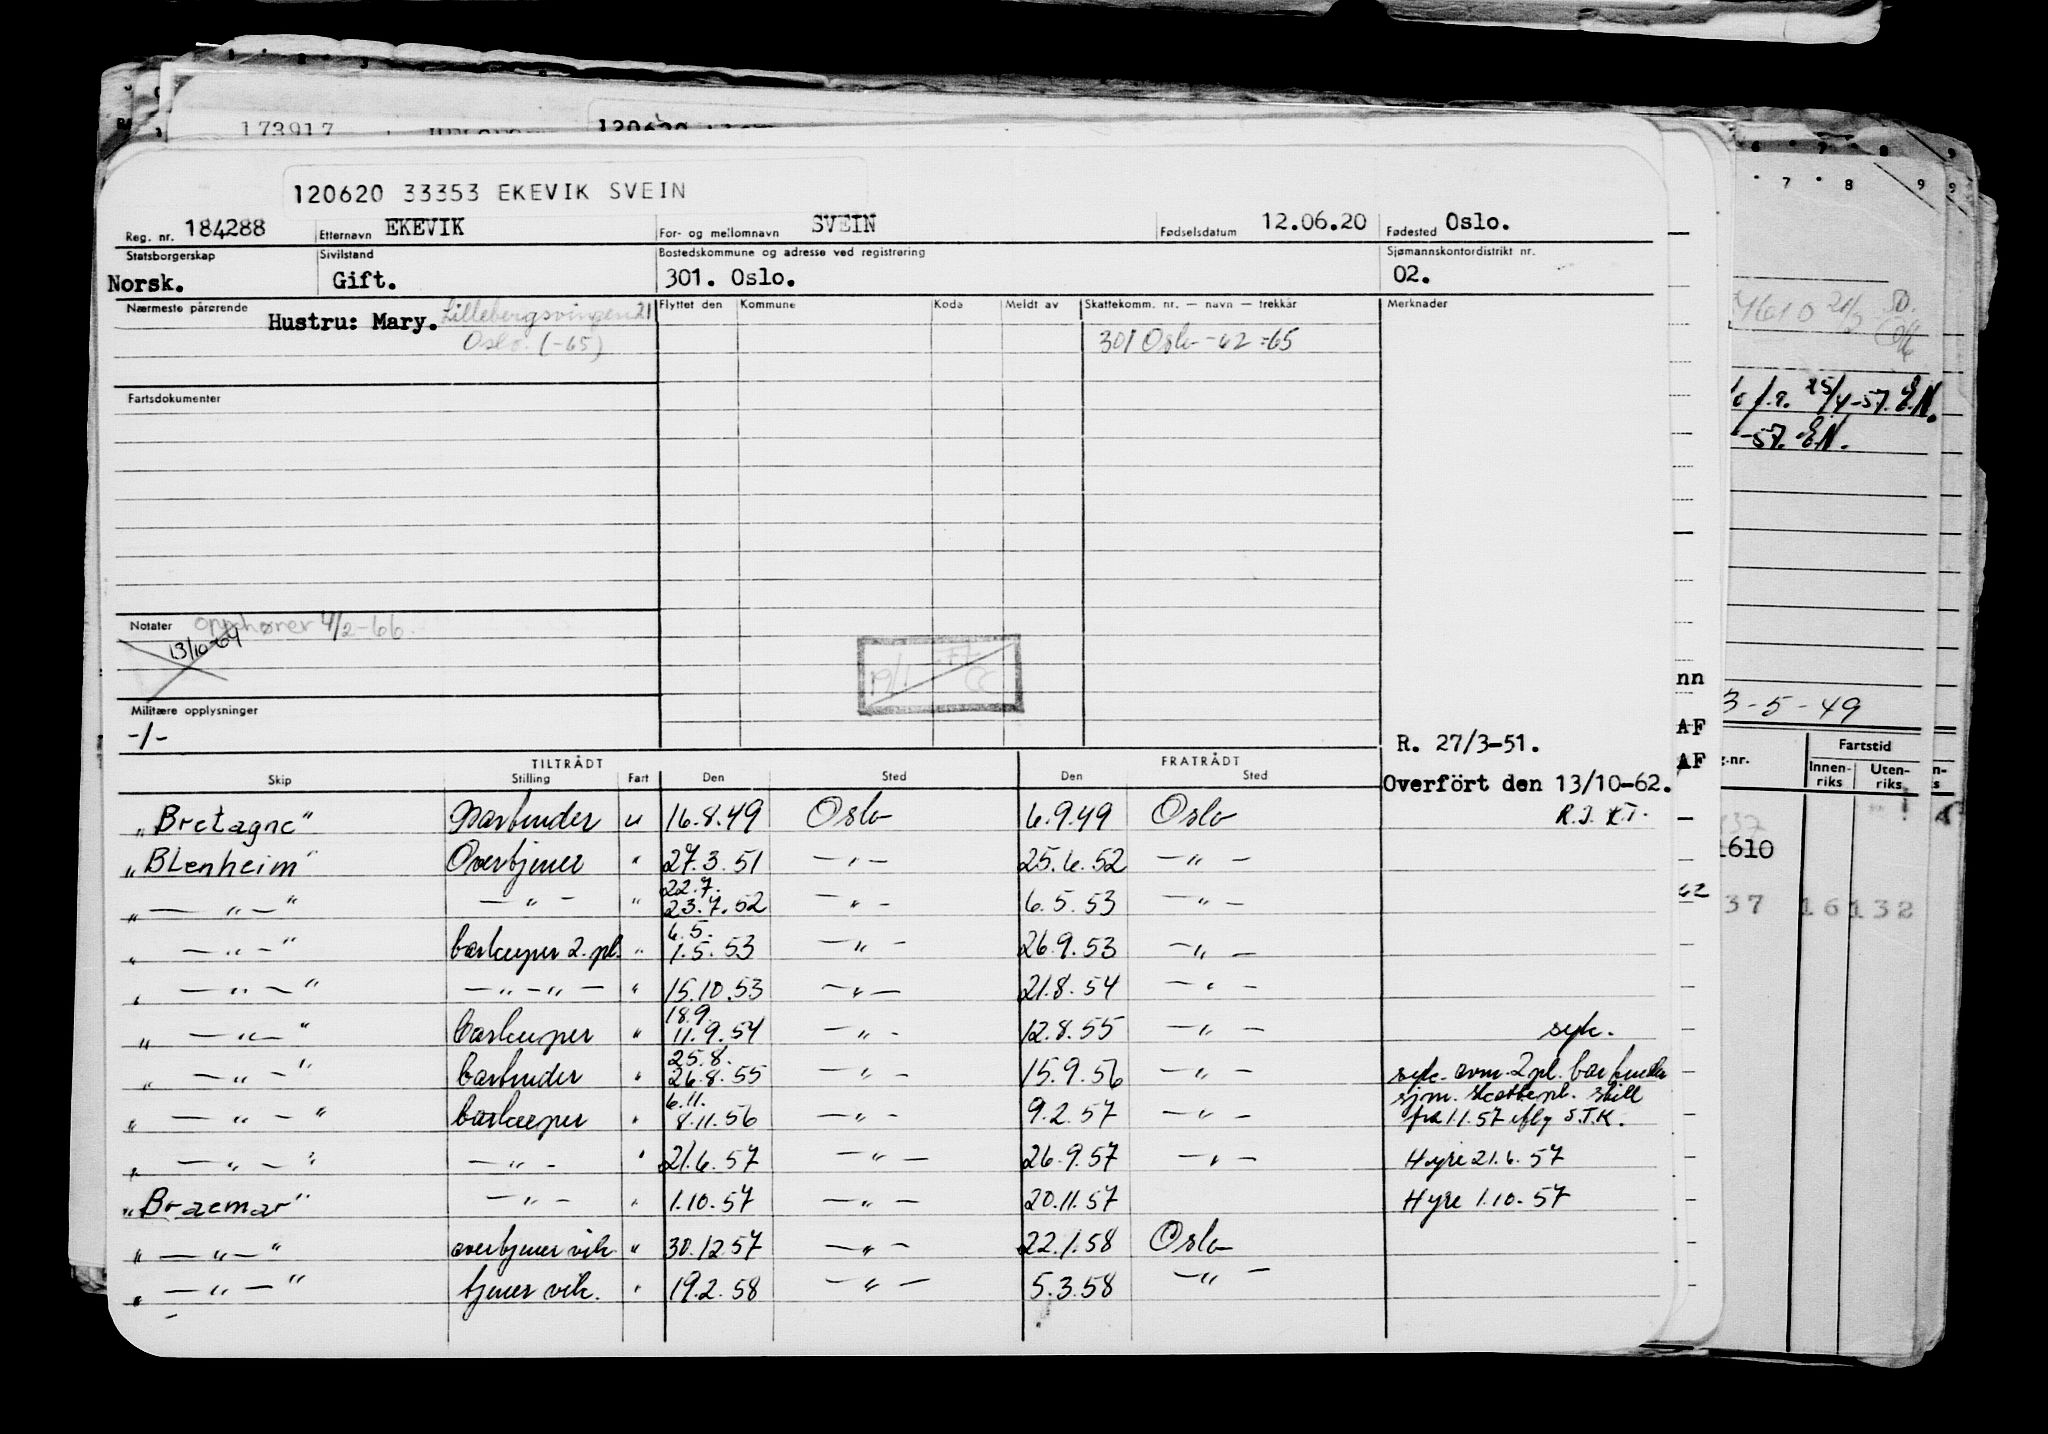 173917
120620
120620 33353 EKEVIK SVEIN
Reg. nr. 184288 Etternavn EKEVIK For- og mellomnavn SVEIN Fødselsdatum 12.06.20 Fødested Oslo.
Statsborgerskap Sivilstand Bostedskommune og adresse ved registrering Sjømannskontordistrikt nr.
Norsk. Gift. 301. Oslo. 02.
Nærmeste pårørende Hustru: Mary. Lillebergsvingen 21 Flyttet den Kommune Kode Meldt av Skattekomm. nr. — navn — trekkår Merknader
Oslo. (-65) 301 Oslo -62 -65
Fartsdokumenter
Notater opphører 4/2-66.
13/10-64
19/1 -77
CC
Militære opplysninger
-/-
R. 27/3-51.
TILTRÅDT FRATRÅDT
Skip Stilling Fart Den Sted Den Sted
Overfört den 13/10-62.
R.J. K.T.
"Bretagne" Barbinder u 16.8.49 Oslo 6.9.49 Oslo
"Blenheim" Overtjener " 27.3.51 — " — 25.6.52 — " —
22.7.
" — " — " — " — " 23.7.52 — " — 6.5.53 — " —
6.5.
" — " — " barkeeper 2. pl. " 1.5.53 — " — 26.9.53 — " —
" — " — " — " — " — " 15.10.53 — " — 21.8.54 — " —
18.9.
" — " — " barkeeper " 11.9.54 — " — 12.8.55 — " — syk.
25.8.
" — " — " " 26.8.55 — " — 15.9.56 — " — syk. 2 pl.
6.11. sjm. skattepl. skill
" — " — " barkeeper " 8.11.56 — " — 9.2.57 — " — fra 1.1.57 iflg S.T.K.
" — " — " — " — " 21.6.57 — " — 26.9.57 — " — Hyre 21.6.57
"Braemar" — " — " 1.10.57 — " — 20.11.57 Hyre 1.10.57
" — " — " overtjener vik. " 30.12.57 — " — 22.1.58 Oslo
" — " — " tjener vik. " 19.2.58 — " — 5.3.58 — " —
7 8 9
7 8 9 9
25/4-57. E.N.
-57. E.N.
nn
3-5-49
AF
AF
Fartstid
g.nr. Innen-riks Uten-riks
1610
62
37 16132